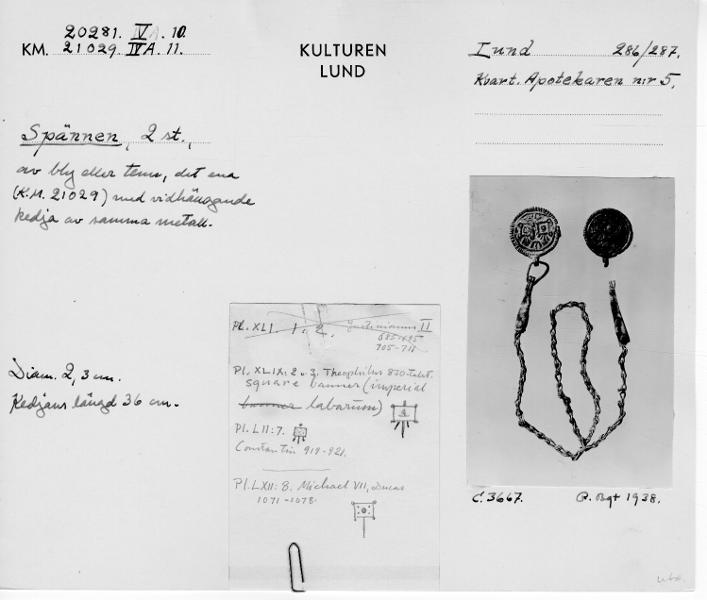 KM. 20281. IVA. 10.
21029. IVA. 11.
KULTUREN
LUND
Lund 286/287.
Kvart. Apotekaren n:r 5.
Spännen, 2 st.,
av bly eller tenn, det ena
(K.M. 21029) med vidhängande
kedja av samma metall.
Diam. 2,3 cm.
Kedjans längd 36 cm.
Pl. XLI. 1: 2. Justinianus II
685-695
705-711
Pl. XLIX: 2 o 3. Theophilus 830-talet.
square banner (imperial
banner labarum)
Pl. LII: 7.
Constantin 919-921.
Pl. LXII: 8. Michael VII, Ducas
1071-1078.
C. 3667. 1938.